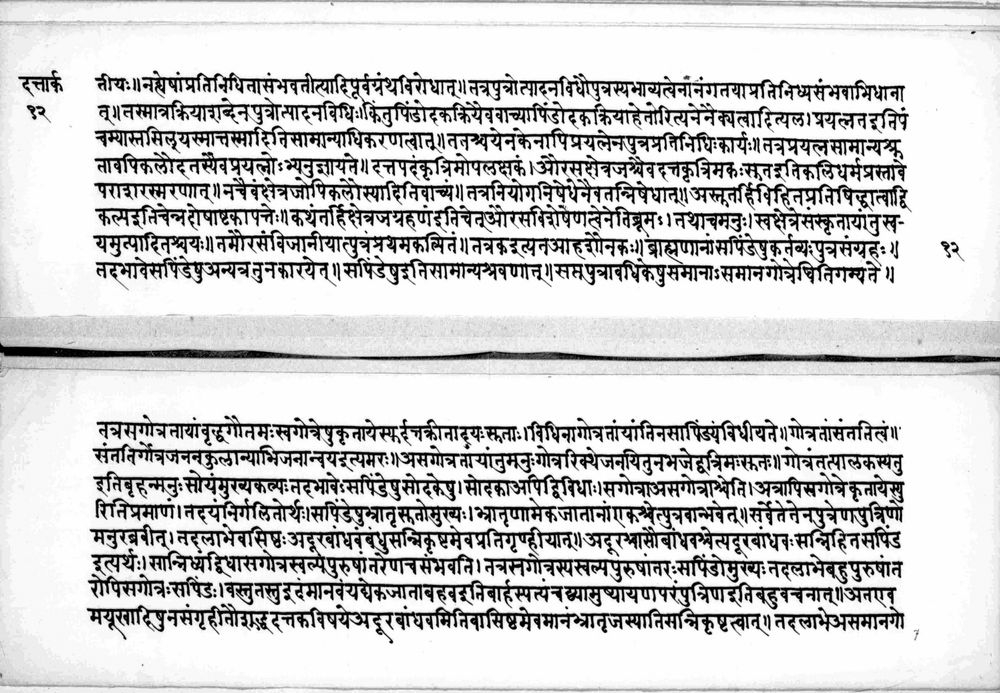 दत्तार्क
१२
तीयः॥नह्येषांप्रतिनिधितासंभवतीत्यादिपूर्वग्रंथविरोधात्॥तत्रपुत्रोत्पादनविधौपुत्रस्यभाव्यत्वेनानंगतयाप्रतिनिध्यसंभवाभिधाना
त्॥तस्मात्रक्रियाशब्देनपुत्रोत्पादनविधिः।किंतुपिंडोदकक्रियैववाच्यापिंडोदकक्रियाहेतोरित्यनेनैक्यलादित्यल।प्रयत्नतइतिपं
चम्यास्तसिल्यस्मात्तस्मादितिसामान्याधिकरणत्वात्॥ततश्चयेनकेनापिप्रयत्नेनपुत्रप्रतिनिधिःकार्यः॥तत्रप्रयत्नसामान्यश्रु
तावपिकलौदत्तस्यैवप्रयत्नोऽभ्यनुज्ञायते॥दत्तपदंकृत्रिमोपलक्षकं।औरसःक्षेत्रजश्चैवदत्तकृत्रिमकःसुतइतिकलिधर्मप्रस्तावे
पराशरस्मरणात्॥नचैवंक्षेत्रजोपिकलौस्यादितिवाच्यं॥तत्रनियोगनिषेधेनैवतन्निषेधात्॥अस्तुतर्हिविहितप्रतिषिद्धत्वाद्वि
कल्पइतिचेन्नदोषाष्टकापत्तेः॥कथंतर्हिक्षेत्रजग्रहणमितिचेत्औरसविशेषणत्वेनेतिब्रूमः।तथाचमनुः।स्वक्षेत्रेसंस्कृतायांतुस्व
यमुत्पादितश्चयः॥तमौरसंविजानीयात्पुत्रंप्रथमकल्पितं॥तत्रकइत्यत्रआहशौनकः॥ब्राह्मणानांसपिंडेषुकर्तव्यःपुत्रसंग्रहः।
तदभावेसपिंडेषुअन्यत्रतुनकारयेत्॥सपिंडेषुइतिसामान्यश्रवणात्॥सप्तपुत्रावधिकेषुसमानाऽसमानगोत्रेष्वितिगम्यते॥
१२
तत्रसगोत्रतायांवृद्धगौतमःस्वगोत्रेषुकृतायेस्युर्दत्तक्रीतादयःसुताः।विधिनागोत्रतांयांतिनसापिंड्यंविधीयते॥गोत्रतांसंततित्वं॥
संततिर्गोत्रजननकुलान्याभिजनान्वयइत्यमरः॥असगोत्रतायांतुमनुःगोत्ररिक्थेजनयितुर्नभजेद्दत्रिमःसुतः॥गोत्रंतत्पालकस्यतु
इतिबृहन्मनुःसोयंमुख्यकल्पःतदभावेःसपिंडेषुसोदकेषु।सोदकाअपिद्विविधाः।सगोत्राअसगोत्राश्चेति।अत्रापिस्वगोत्रेकृतायेस्यु
रितिप्रमाणं।तदयंनिर्गलितोर्थः।सपिंडेषुभ्रातृसुतोमुख्यः।भ्रातृणामेकजातानांएकश्चेत्पुत्रवान्भवेत्॥सर्वेतेतेनपुत्रेणपुत्रिणो
मनुरब्रवीत्।तदलाभेवासिष्ठःअदूरबांधवंबंधुसन्निकृष्टमेवप्रतिगृण्हीयात्॥अदूरश्चासौबांधवश्चेत्यदूरबांधवःसन्निहितसपिंड
इत्यर्थः।सान्निध्यंद्विधासगोत्रस्वल्पपुरुषांतरेणचसंभवति।तत्रसगोत्रस्यस्वल्पपुरुषांतरःसपिंडोमुख्यःतदलाभेबहुपुरुषांत
रोपिसगोत्रःसपिंडः।वस्तुतस्तुइदंमानवंयद्येकजाताबहवइतिबार्हस्पत्यंचद्व्यामुष्यायणपरंपुत्रिणइतिबहुवचनात्॥अतएव
मयूखादिषुनसंगृहीतौशुद्धदत्तकविषयेअदूरबांधवमितिवासिष्ठमेवमानंभ्रातृजस्यातिसन्निकृष्टत्वात्॥तदलाभेअसमानगो